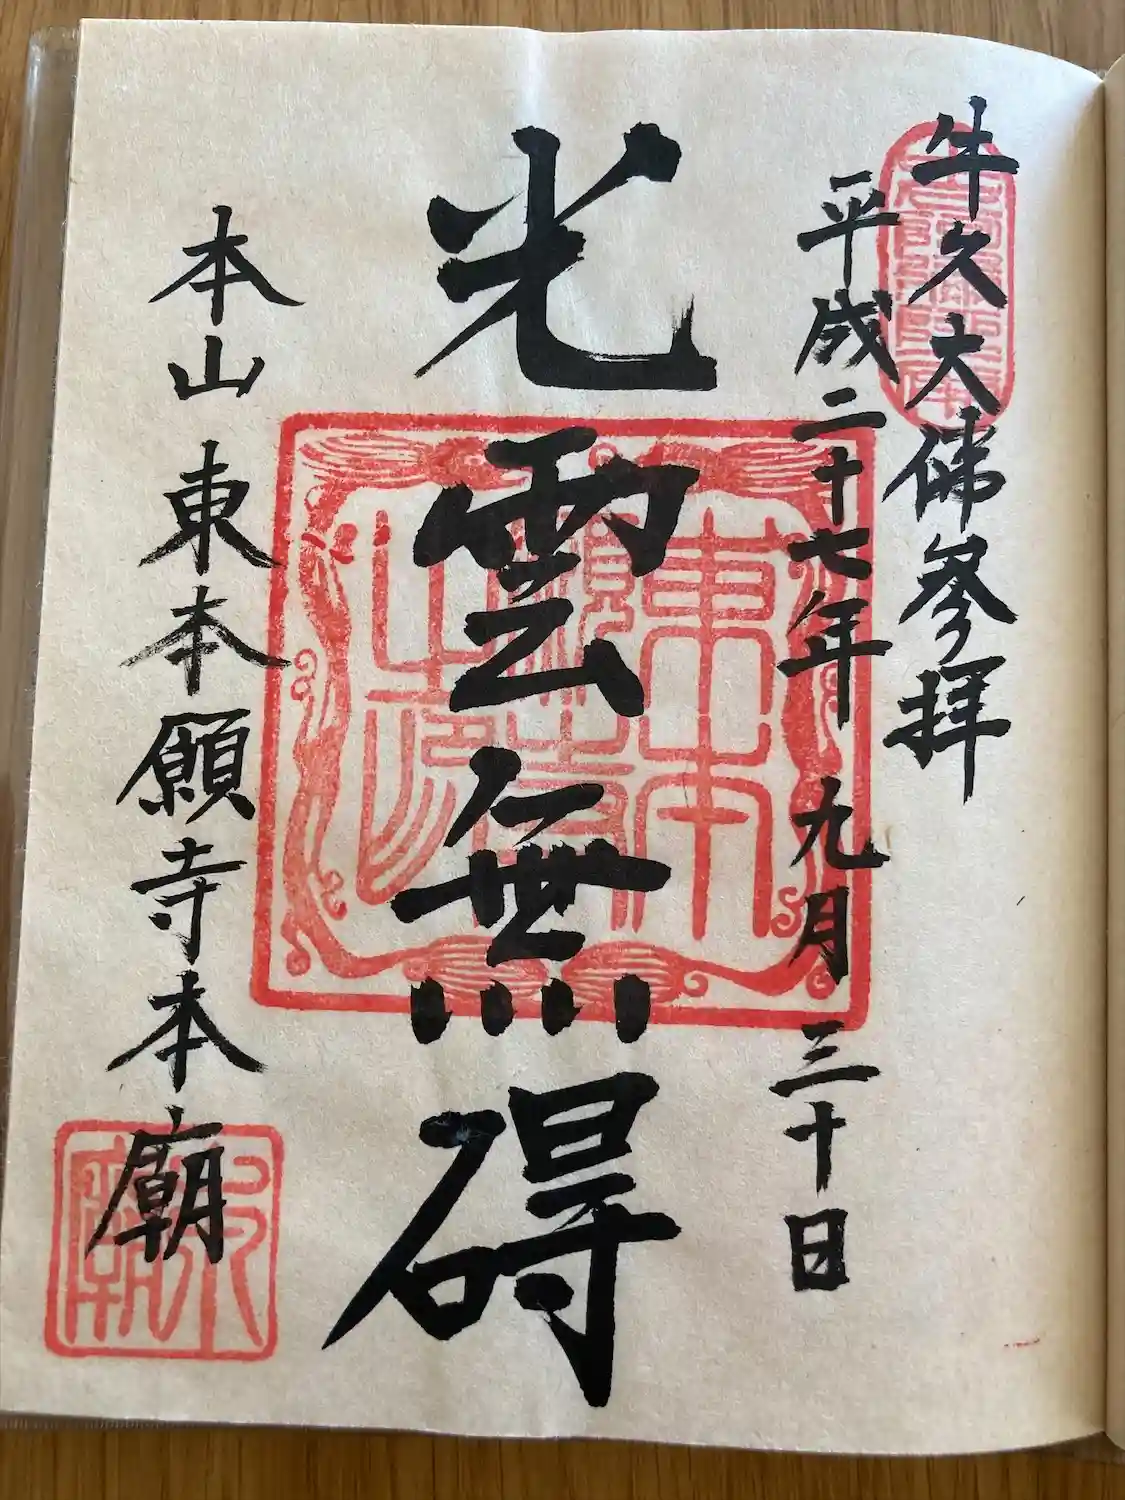 牛久大佛参拝
平成二十七年 九月 三十日
光雲無碍
本山 東本願寺本廟
東本願寺之印
本廟